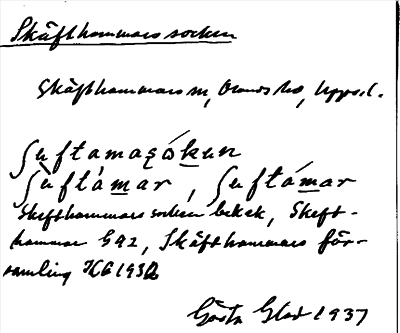 Skäfthammars socken
Skäfthammars sn, Olands hd, Upps. l.
ʃæftamaʂókən
ʃæ̀ftámar, ʃæftámar
Skefthammars socken bekek, Skeft-
hammar GAZ, Skäfthammars för-
samling KG 1932
Gösta Glad 1937